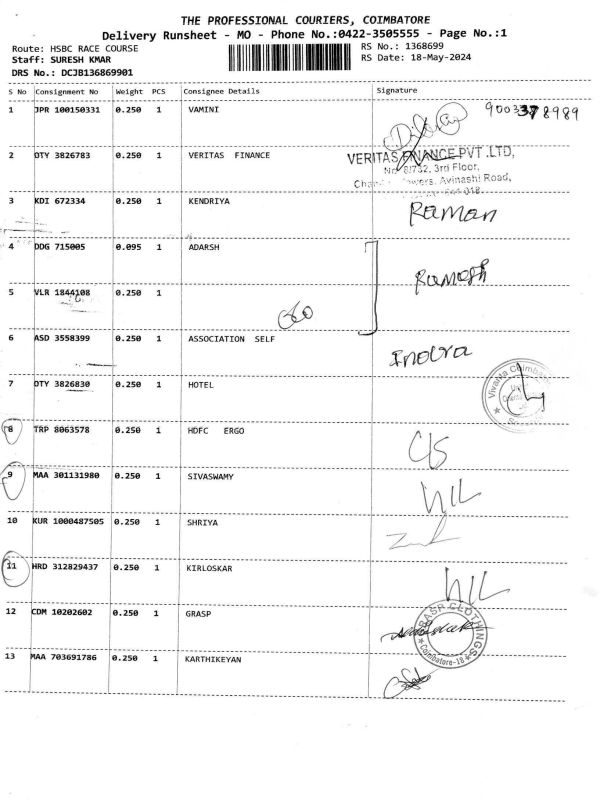 THE PROFESSIONAL COURIERS, COIMBATORE
Delivery Runsheet - MO - Phone No.:0422-3505555 - Page No.:1
Route: HSBC RACE COURSE
RS No.: 1368699
Staff: SURESH KMAR
RS Date: 18-May-2024
DRS No.: DCJB136869901
S No Consignment No Weight PCS Consignee Details Signature
1 JPR 100150331 0.250 1 VAMINI
2 OTY 3826783 0.250 1 VERITAS FINANCE
VERITAS FINANCE PVT .LTD,
3rd Floor,
Avinashi Road,
3 KDI 672334 0.250 1 KENDRIYA Raman
4 DDG 715005 0.095 1 ADARSH
Ramesh
5 VLR 1844108 0.250 1
6 ASD 3558399 0.250 1 ASSOCIATION SELF Indra
7 OTY 3826830 0.250 1 HOTEL
8 TRP 8063578 0.250 1 HDFC ERGO C/S
9 MAA 301131980 0.250 1 SIVASWAMY
10 KUR 1000487505 0.250 1 SHRIYA
11 HRD 312829437 0.250 1 KIRLOSKAR
12 CDM 10202602 0.250 1 GRASP
CLOTHINGS
Coimbatore-18
13 MAA 703691786 0.250 1 KARTHIKEYAN